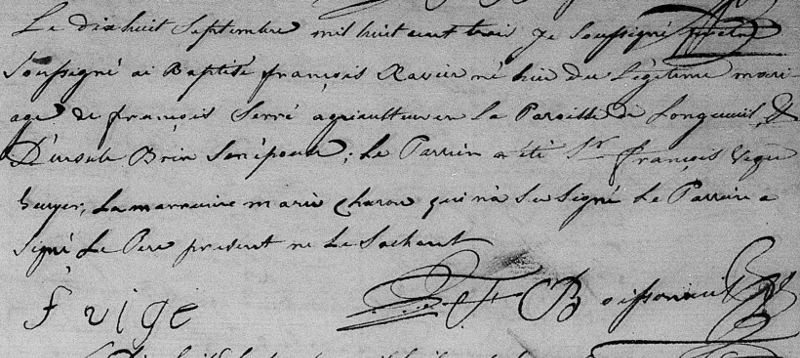 Le dixhuit Septembre mil huit cent trois je Soussigné prêtre
Soussigné ai Baptisé françois Xavier né hier du Légitime mari
age de françois Serré agriculteur en la Paroisse de Longueuil, &
D'ursule Brin Son épouse; Le Parrein a été Sr. françois
La marraine marie charon qui n'a Su Signé Le Parrein a
Signé Le Pere présent ne Le Sachant
f vige
F Boissonnault